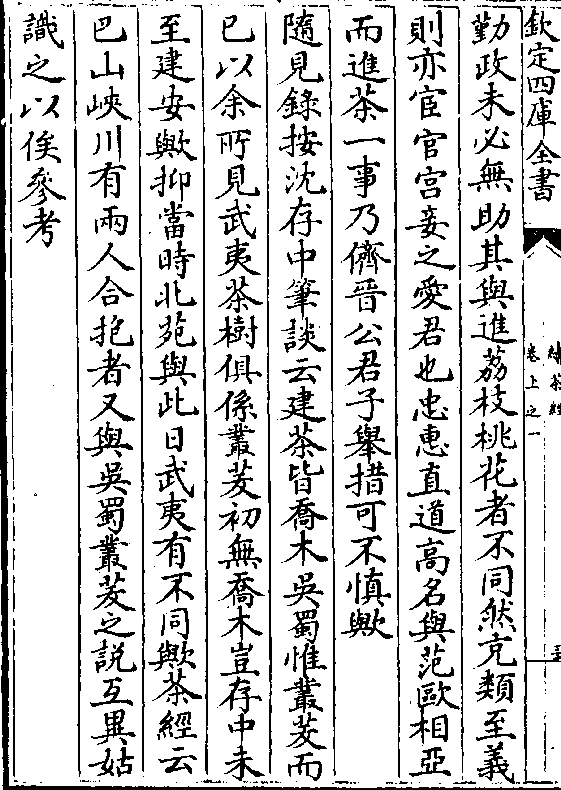 欽定四庫全書
續茶經
卷上之一
勤政未必無助其與進荔枝桃花者不同然充類至義
則亦宦官宮妾之愛君也忠惠直道高名與范歐相亞
而進茶一事乃儕晉公君子舉措可不慎歟
隨見錄按沈存中筆談云建茶皆喬木吳蜀惟叢茇而
已以余所見武夷茶樹俱係叢茇初無喬木豈存中未
至建安歟抑當時北苑與此日武夷有不同歟茶經云
巴山峽川有兩人合抱者又與吳蜀叢茇之説互異姑
識之以俟參考